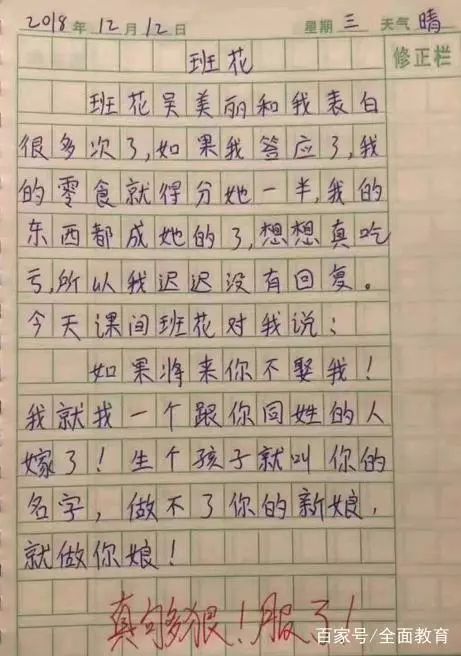 2018年12月12日 星期三 天气晴
班花 修正栏
班花吴美丽和我表白
很多次了,如果我答应了,我
的零食就得分她一半,我的
东西都成她的了,想想真吃
亏,所以我迟迟没有回复。
今天课间班花对我说:
如果将来你不娶我!
我就找一个跟你同姓的人
嫁了!生个孩子就叫你的
名字,做不了你的新娘,
就做你娘!
真够狠!服了!
百家号/全面教育